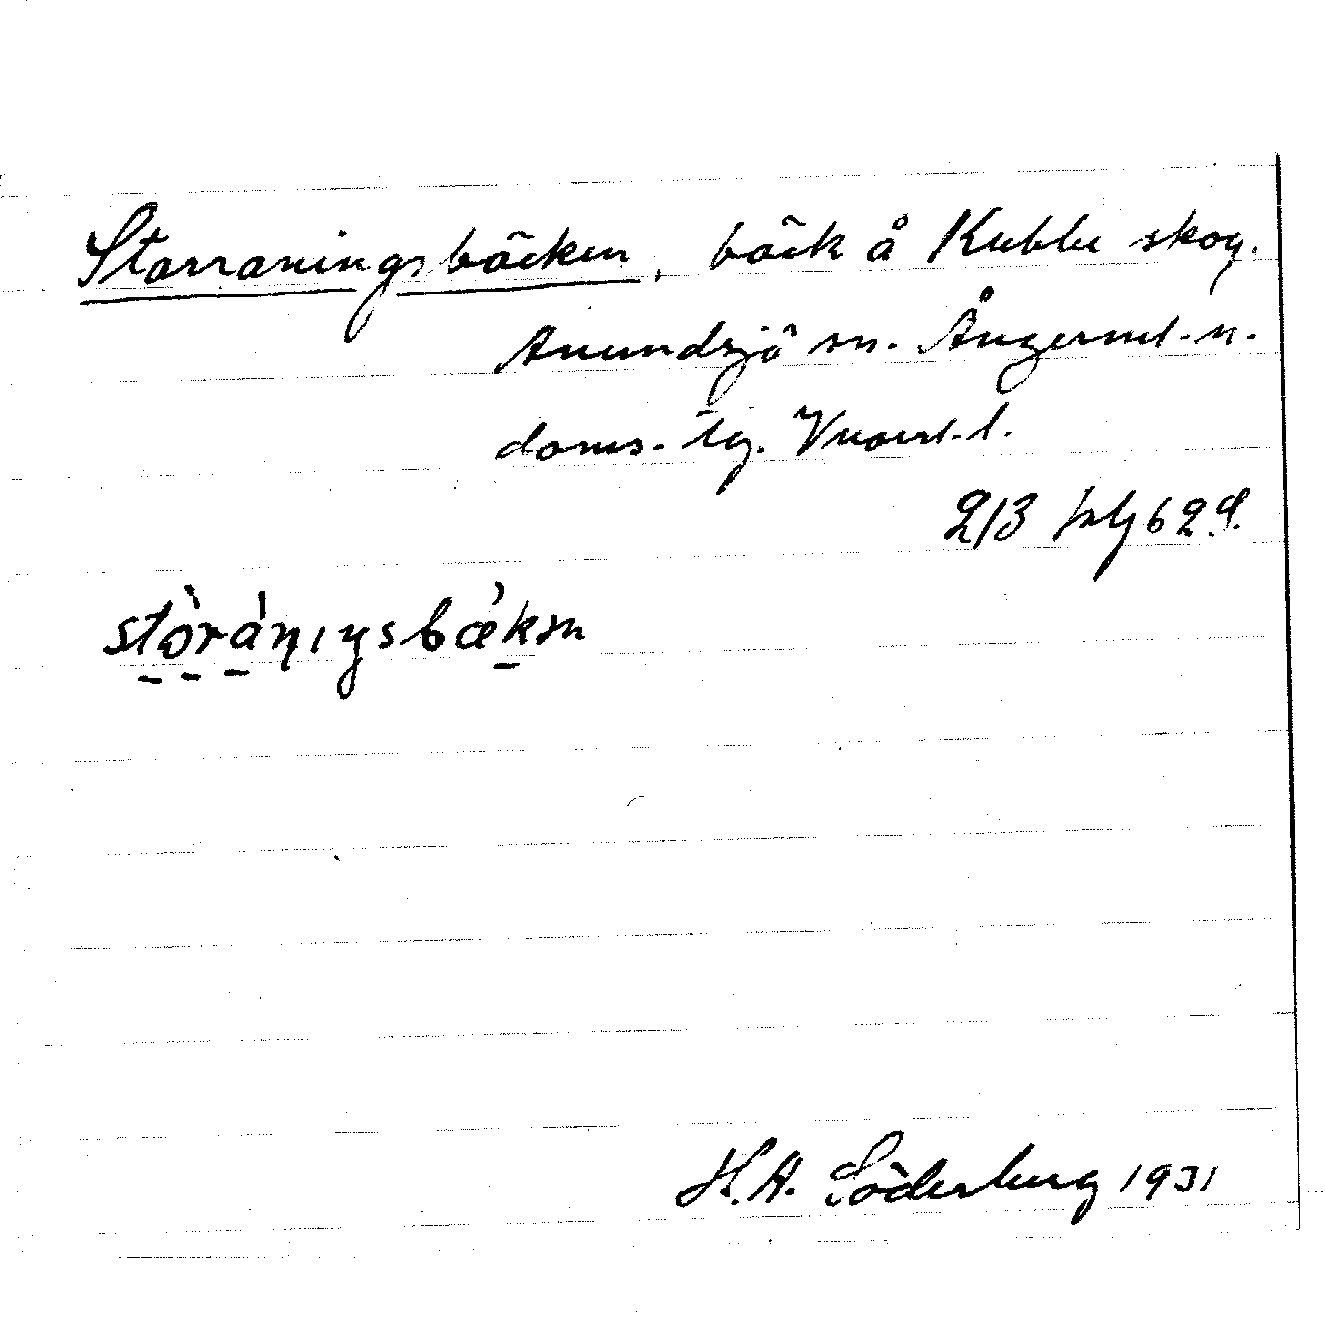 Storraningsbäcken, bäck å Kubbe skog.
Anundsjö sn. Ångerml. n.
doms. tg. Vnorrl. l.
213 62 d.
stòrániŋsbæ̀kən
H. A. Söderberg 1931